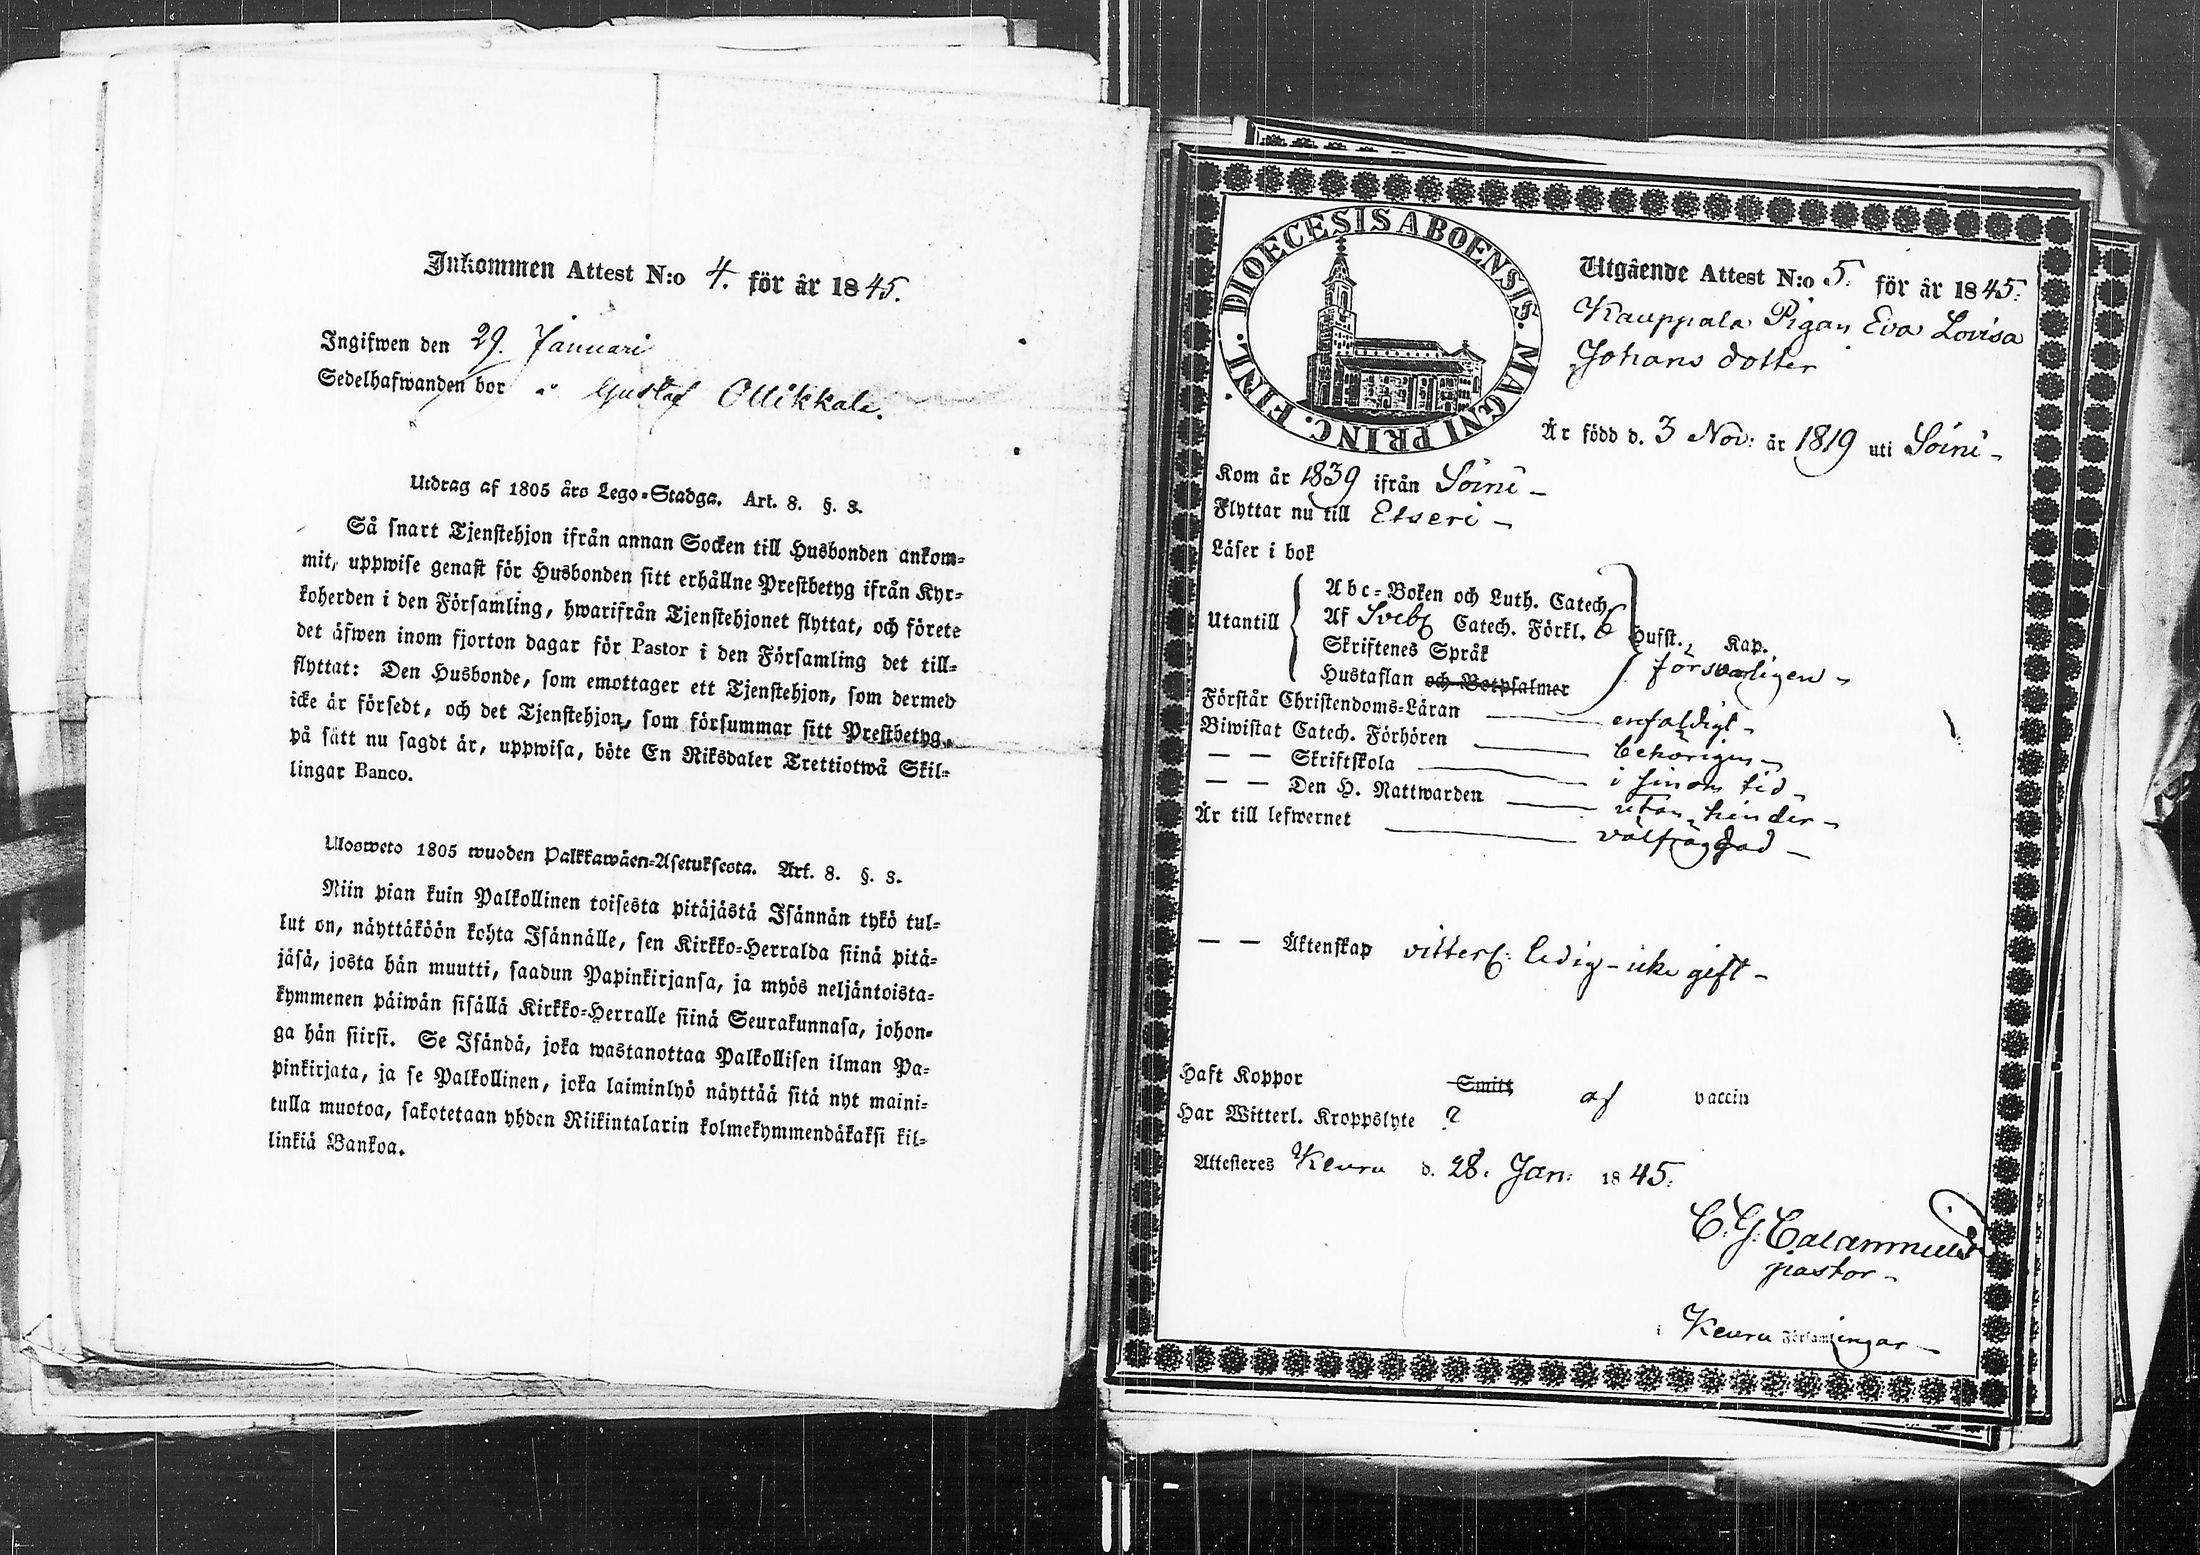 Inkommen Attest N:o 4. för år 1845.
Ingifwen den 29. Januari
Sedelhafwanden bor å Gustaf Ollikkala.
Utdrag af 1805 års Lego-Stadga. Art. 8. §. 8.
Så snart Tjenstehjon ifrån annan Socken till Husbonden ankom-
mit, uppwise genast för Husbonden sitt erhållne Prestbetyg ifrån Kyr-
koherden i den Församling, hwarifrån Tjenstehjonet flyttat, och förete
det äfwen inom fjorton dagar för Pastor i den Församling det till-
flyttat: Den Husbonde, som emottager ett Tjenstehjon, som dermed
icke är försedt, och det Tjenstehjon, som försummar sitt Prestbetyg,
på sätt nu sagdt är, uppwisa, böte En Riksdaler Trettiotwå Skil-
lingar Banco.
Ulosweto 1805 wuoden Palkkawäen-Asetuksesta. Art. 8. §. 8.
Niin pian kuin Palkollinen toisesta pitäjästä Isännän tykö tul-
lut on, näyttäköön kohta Isännälle, sen Kirkko-Herralda siinä pitä-
jäsä, josta hän muutti, saadun Papinkirjansa, ja myös neljäntoista-
kymmenen päiwän sisällä Kirkko-Herralle siinä Seurakunnasa, johon-
ga hän siirsi. Se Isändä, joka wastanottaa Palkollisen ilman Pa-
pinkirjata, ja se Palkollinen, joka laiminlyö näyttää sitä nyt maini-
tulla muotoa, sakotetaan yhden Riikintalarin kolmekymmendäkaksi kil-
linkiä Bankoa.
DIOECESIS ABOENSIS. MAGNI PRINC. FINL.
Utgående Attest N:o 5. för år 1845.
Kauppala Pigan Eva Lovisa
Johans dotter
Är född d. 3 Nov: år 1819 uti Soini
Kom år 1839 ifrån Soini
Flyttar nu till Etseri
Läser i bok
Utantill
Abc-Boken och Luth. Catech.
Af Sveb. Catech. Förkl. Hufst., Kap.
Skriftenes Språk
Hustaflan och Botpsalmer försvarligen
Förstår Christendoms-Läran enfaldigt
Biwistat Catech. Förhören behörigen
— — Skriftskola i sinom tid
— — Den H. Nattwarden utan hinder
Är till lefwernet välfräggad
— — Äktenskap vitterl: ledig - icke gift
Haft Koppor Smitt af vaccin
Har Witterl. Kroppslyte ?
Attesteres Keuru d. 28. Jan: 1845.
C. G. Calamnius
pastor
i Keuru Församlingar